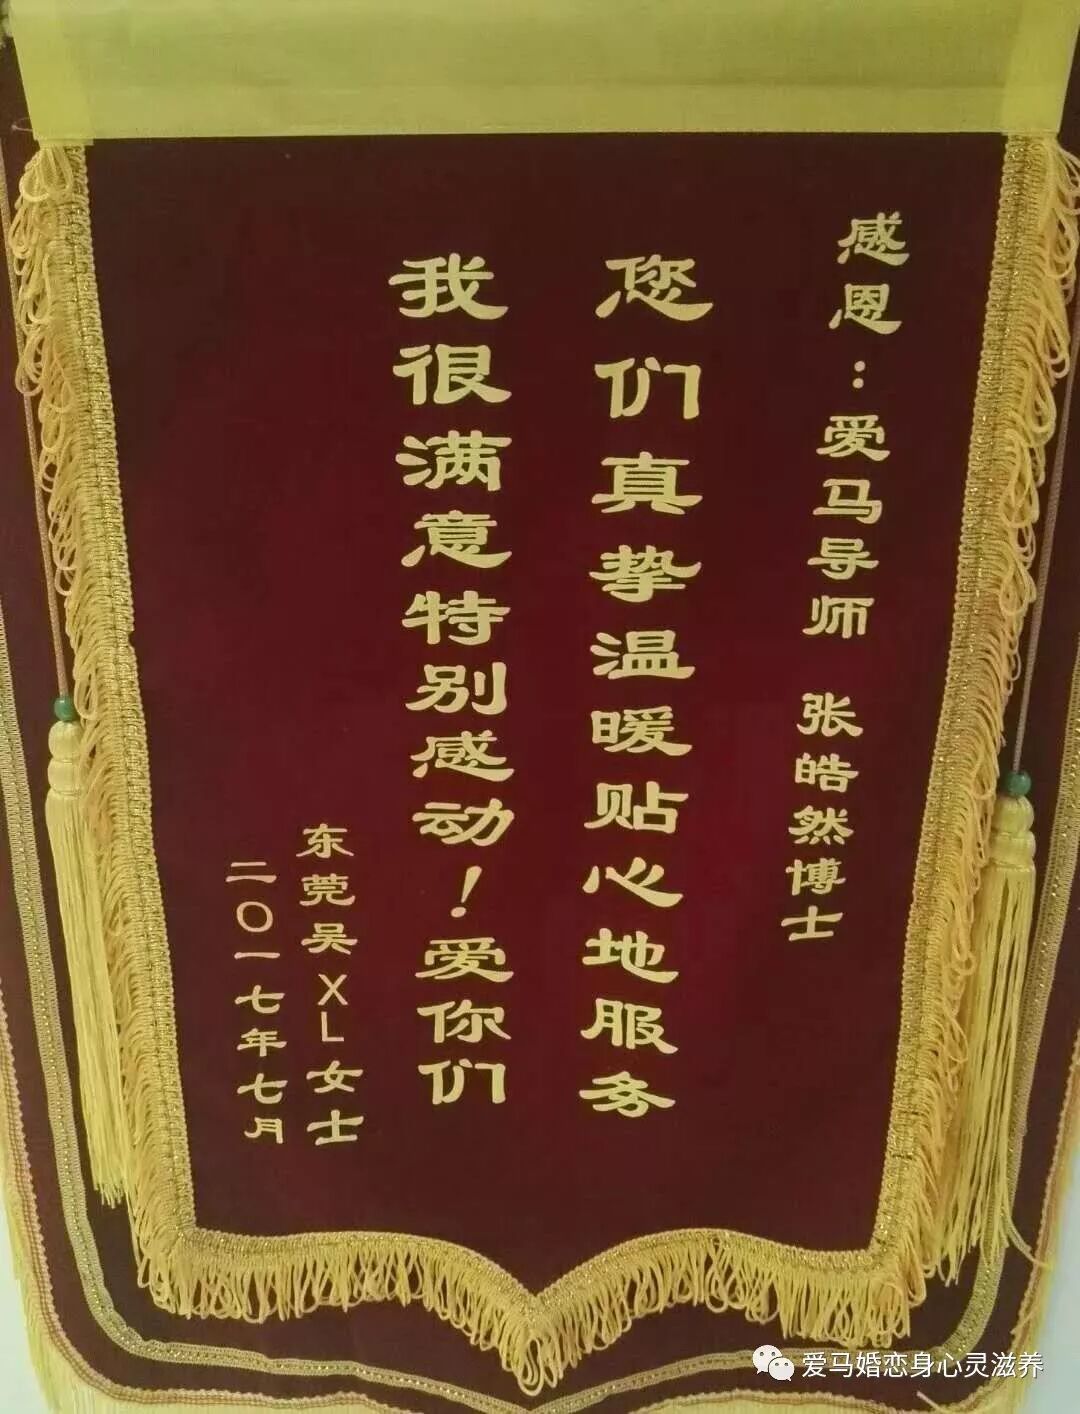 感恩：爱马导师 张皓然博士
您们真挚温暖贴心地服务
我很满意特别感动！爱你们
东莞吴XL女士
二〇一七年七月
爱马婚恋身心灵滋养